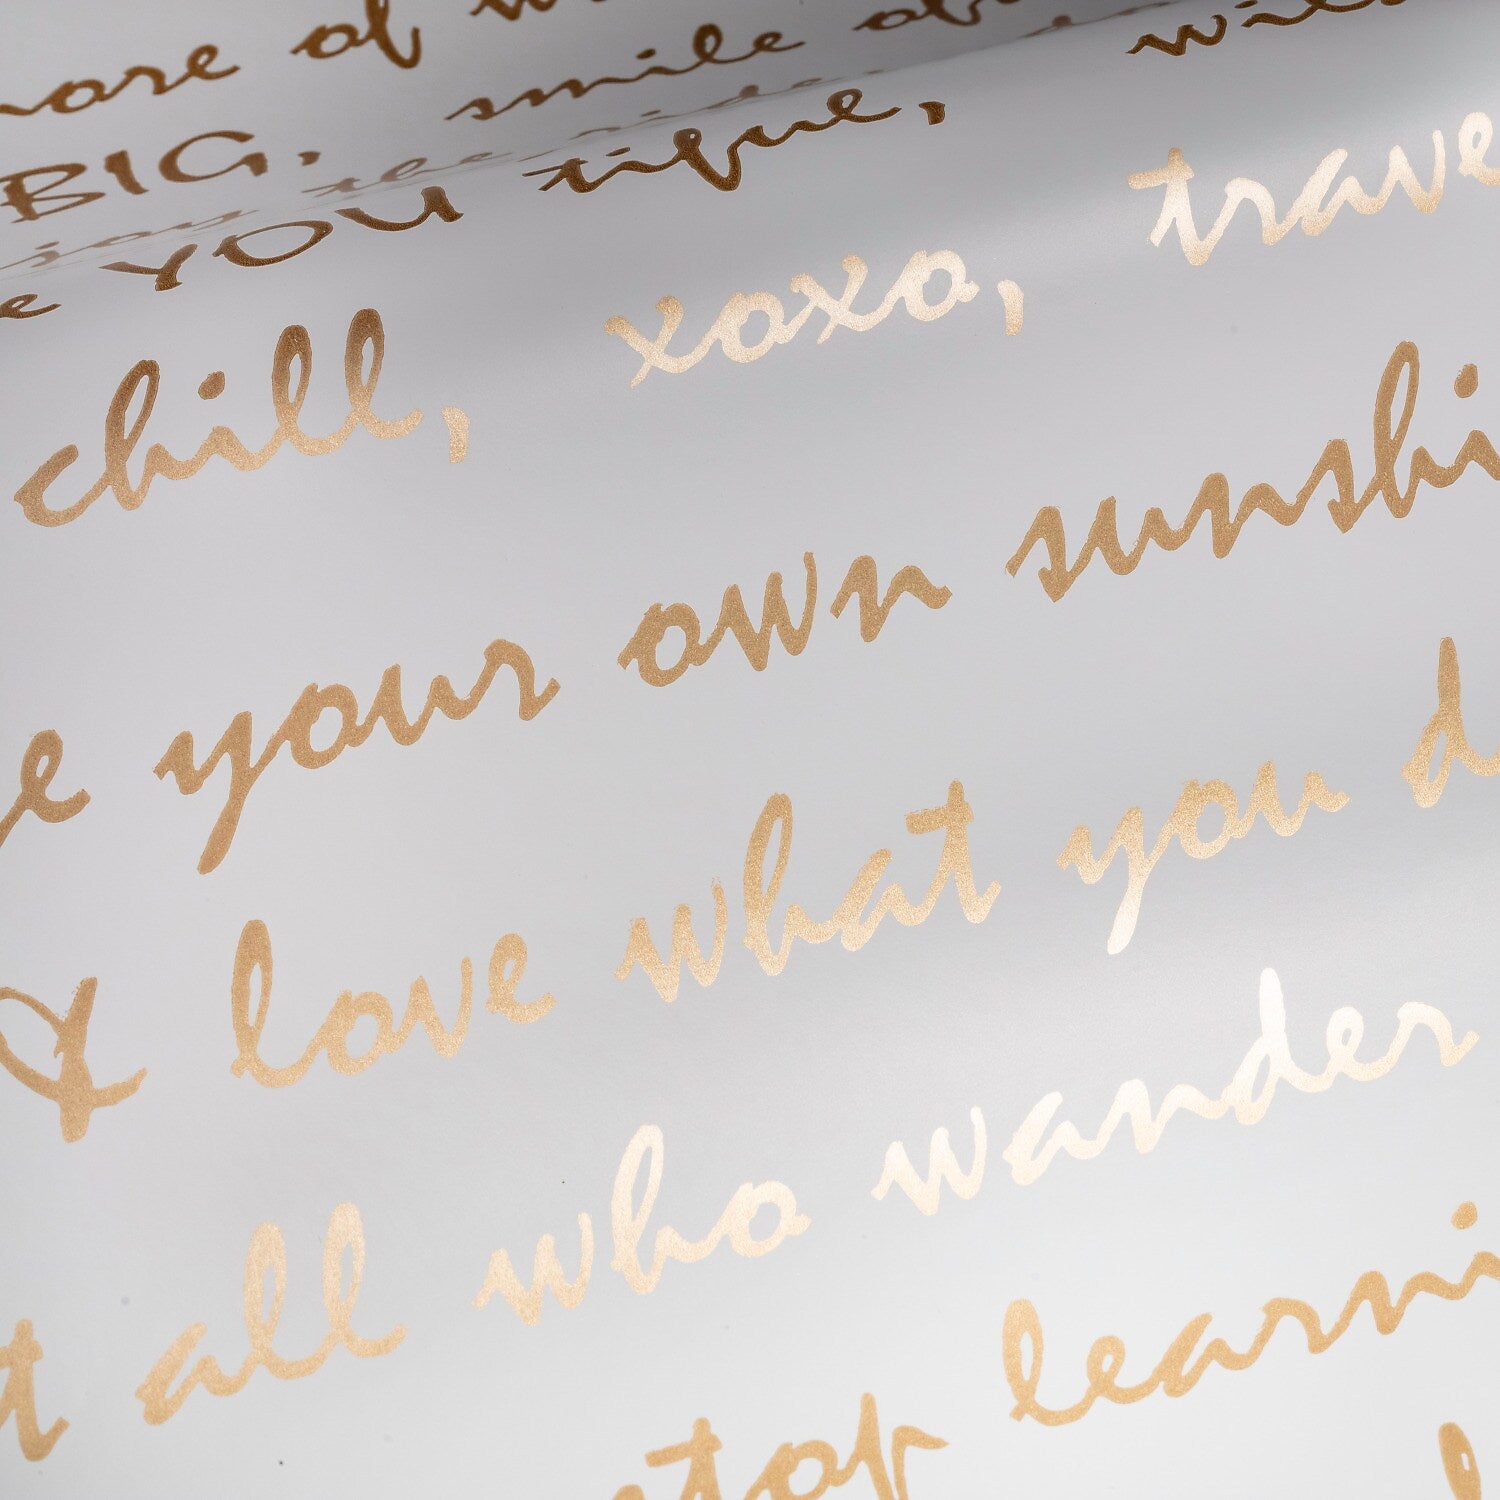 more of
BIG, smile
YOU tique, wil
chill, xoxo, trave
e your own sunshi
& love what you d
t all who wander
top learni